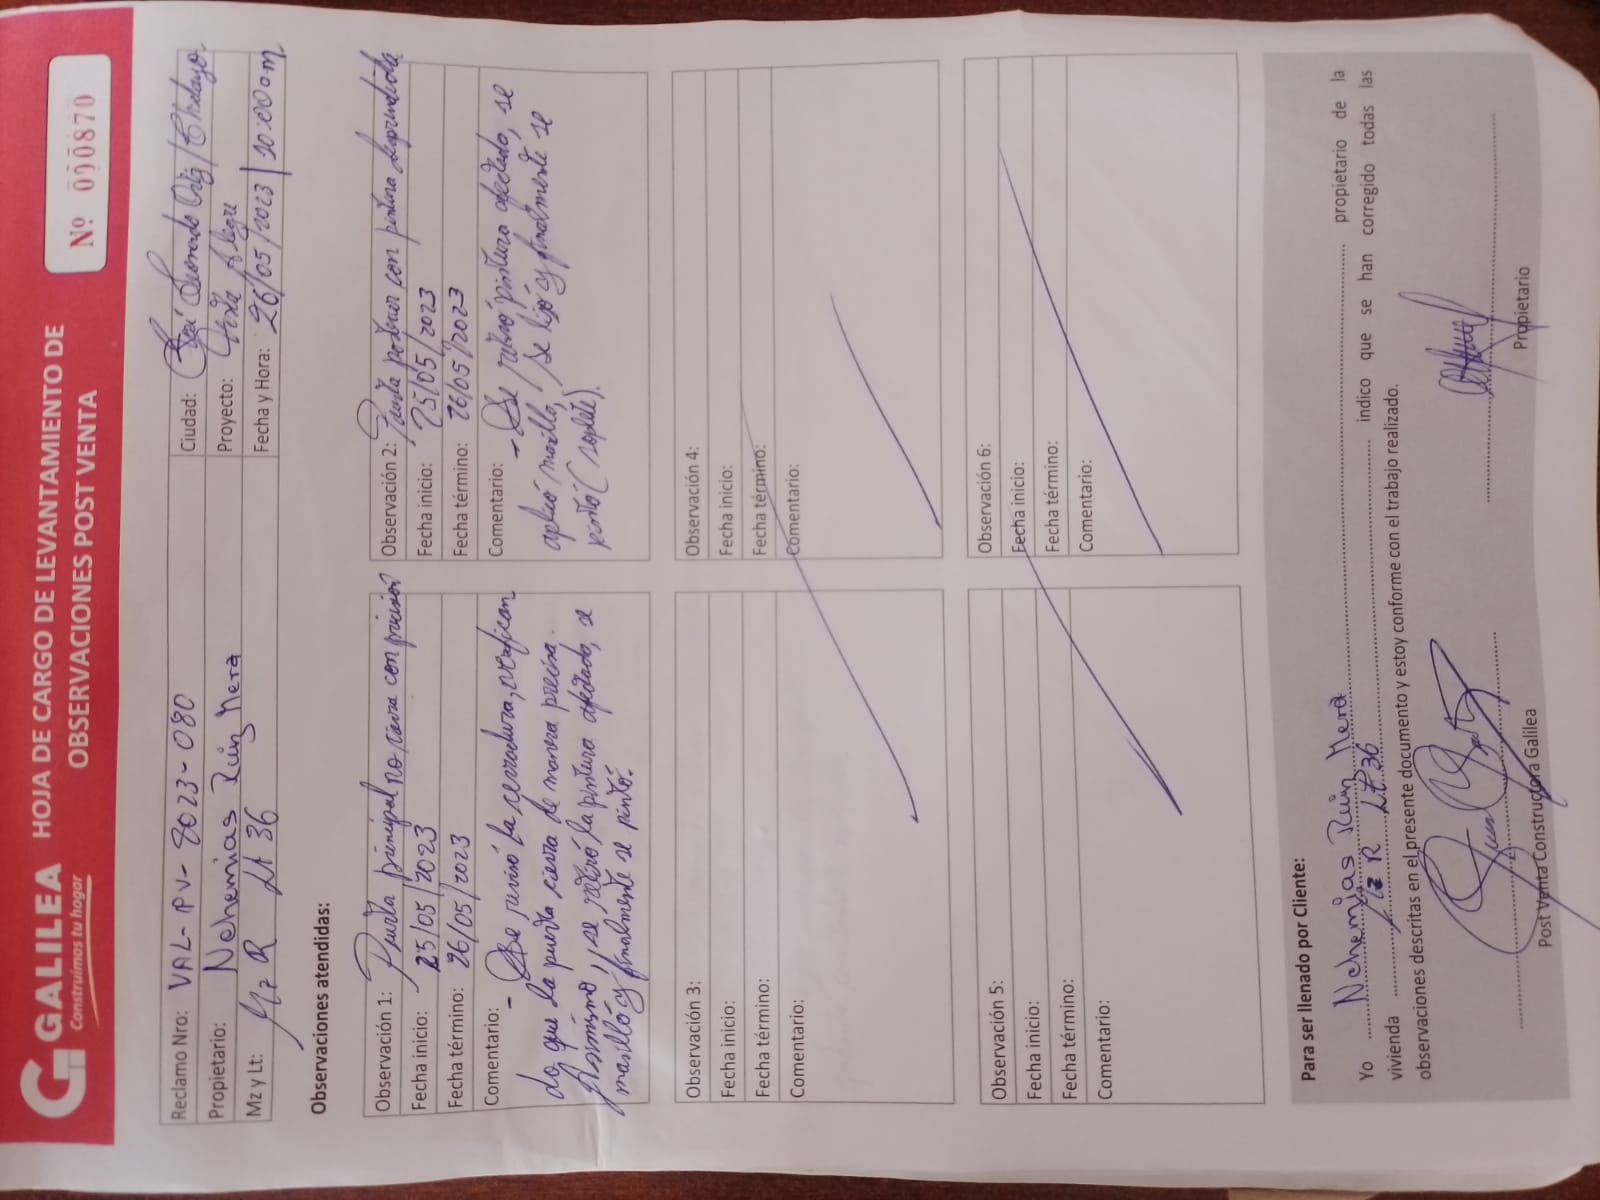 GALILEA
Construimos tu hogar
HOJA DE CARGO DE LEVANTAMIENTO DE
OBSERVACIONES POST VENTA
Nº 000870
Reclamo Nro: VAL-PV-2023-080
Ciudad: José Leonardo Ortiz/Chiclayo
Propietario: Nehemias Ruiz Mera
Proyecto: Alegre
Mz y Lt: Mz R Lt 36
Fecha y Hora: 26/05/2023 | 10:00 a.m.
Observaciones atendidas:
Observación 1: Puerta principal no cierra con precisión
Fecha inicio: 25/05/2023
Fecha término: 26/05/2023
Comentario: - Se revisó la cerradura, verifican
do que la puerta cierra de manera precisa.
Asimismo, se retiró la pintura afectada, se
masilló y finalmente se pintó.
Observación 2: Puerta posterior con pintura desprendida
Fecha inicio: 25/05/2023
Fecha término: 26/05/2023
Comentario: - Se retiró pintura afectada, se
aplicó masilla, se lijó y finalmente se
pintó (soplete).
Observación 3:
Fecha inicio:
Fecha término:
Comentario:
Observación 4:
Fecha inicio:
Fecha término:
Comentario:
Observación 5:
Fecha inicio:
Fecha término:
Comentario:
Observación 6:
Fecha inicio:
Fecha término:
Comentario:
Para ser llenado por Cliente:
Yo Nehemias Ruiz Mera propietario de la
vivienda Mz R Lt 36 indico que se han corregido todas las
observaciones descritas en el presente documento y estoy conforme con el trabajo realizado.
Post Venta Constructora Galilea
Propietario